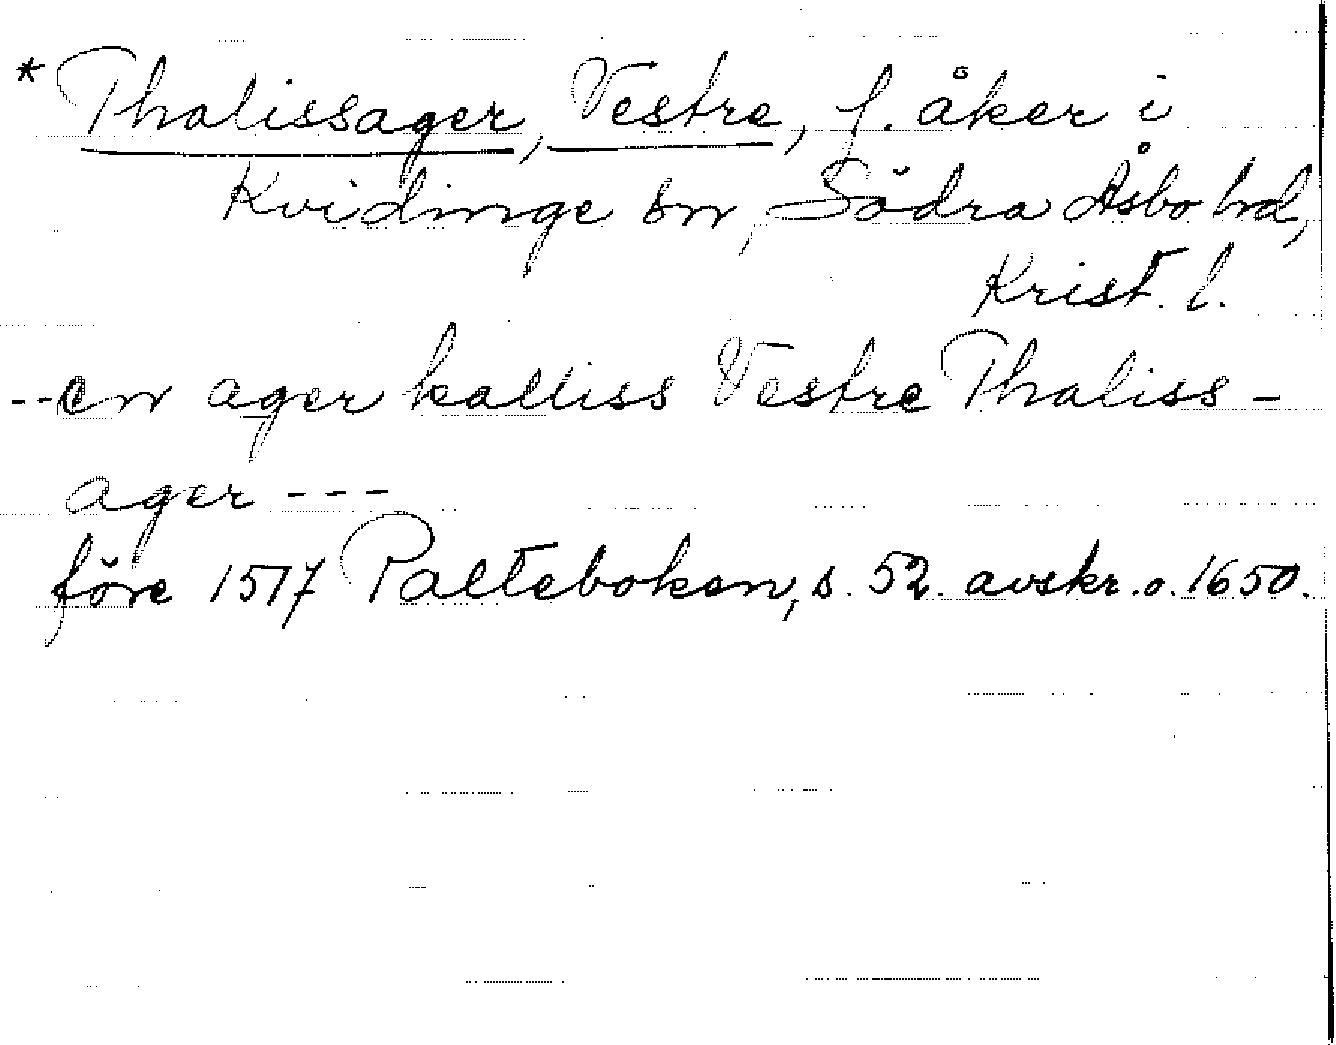 * Thalissager, Vestre, f. åker i
Kvidinge sn, Södra Åsbo hd,
Krist. l.
--en ager kalliss Vestre Thaliss-
ager ---
före 1517 Palteboken, s. 52. avskr. o. 1650.